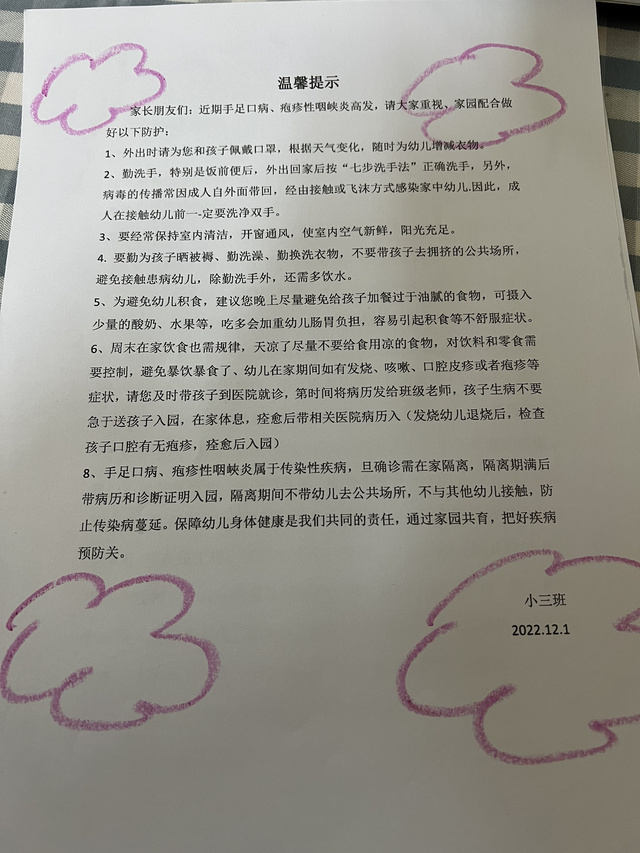 温馨提示
家长朋友们：近期手足口病、疱疹性咽峡炎高发，请大家重视、家园配合做
好以下防护：
1、外出时请为您和孩子佩戴口罩，根据天气变化，随时为幼儿增减衣物。
2、勤洗手，特别是饭前便后，外出回家后按“七步洗手法”正确洗手，另外，
病毒的传播常因成人自外面带回，经由接触或飞沫方式感染家中幼儿.因此，成
人在接触幼儿前一-定要洗净双手。
3、要经常保持室内清洁，开窗通风，使室内空气新鲜，阳光充足。
4. 要勤为孩子晒被褥、勤洗澡、勤换洗衣物，不要带孩子去拥挤的公共场所，
避免接触患病幼儿，除勤洗手外，还需多饮水。
5、为避免幼儿积食，建议您晚上尽量避免给孩子加餐过于油腻的食物，可摄入
少量的酸奶、水果等，吃多会加重幼儿肠胃负担，容易引起积食等不舒服症状。
6、周末在家饮食也需规律，天凉了尽量不要给食用凉的食物，对饮料和零食需
要控制，避免暴饮暴食了、幼儿在家期间如有发烧、咳嗽、口腔皮疹或者疱疹等
症状，请您及时带孩子到医院就诊，第时间将病历发给班级老师，孩子生病不要
急于送孩子入园，在家体息，痊愈后带相关医院病历入（发烧幼儿退烧后，检查
孩子口腔有无疱疹，痊愈后入园）
8、手足口病、疱疹性咽峡炎属于传染性疾病，旦确诊需在家隔离，隔离期满后
带病历和诊断证明入园，隔离期间不带幼儿去公共场所，不与其他幼儿接触，防
止传染病蔓延。保障幼儿身体健康是我们共同的责任，通过家园共育，把好疾病
预防关。
小三班
2022.12.1